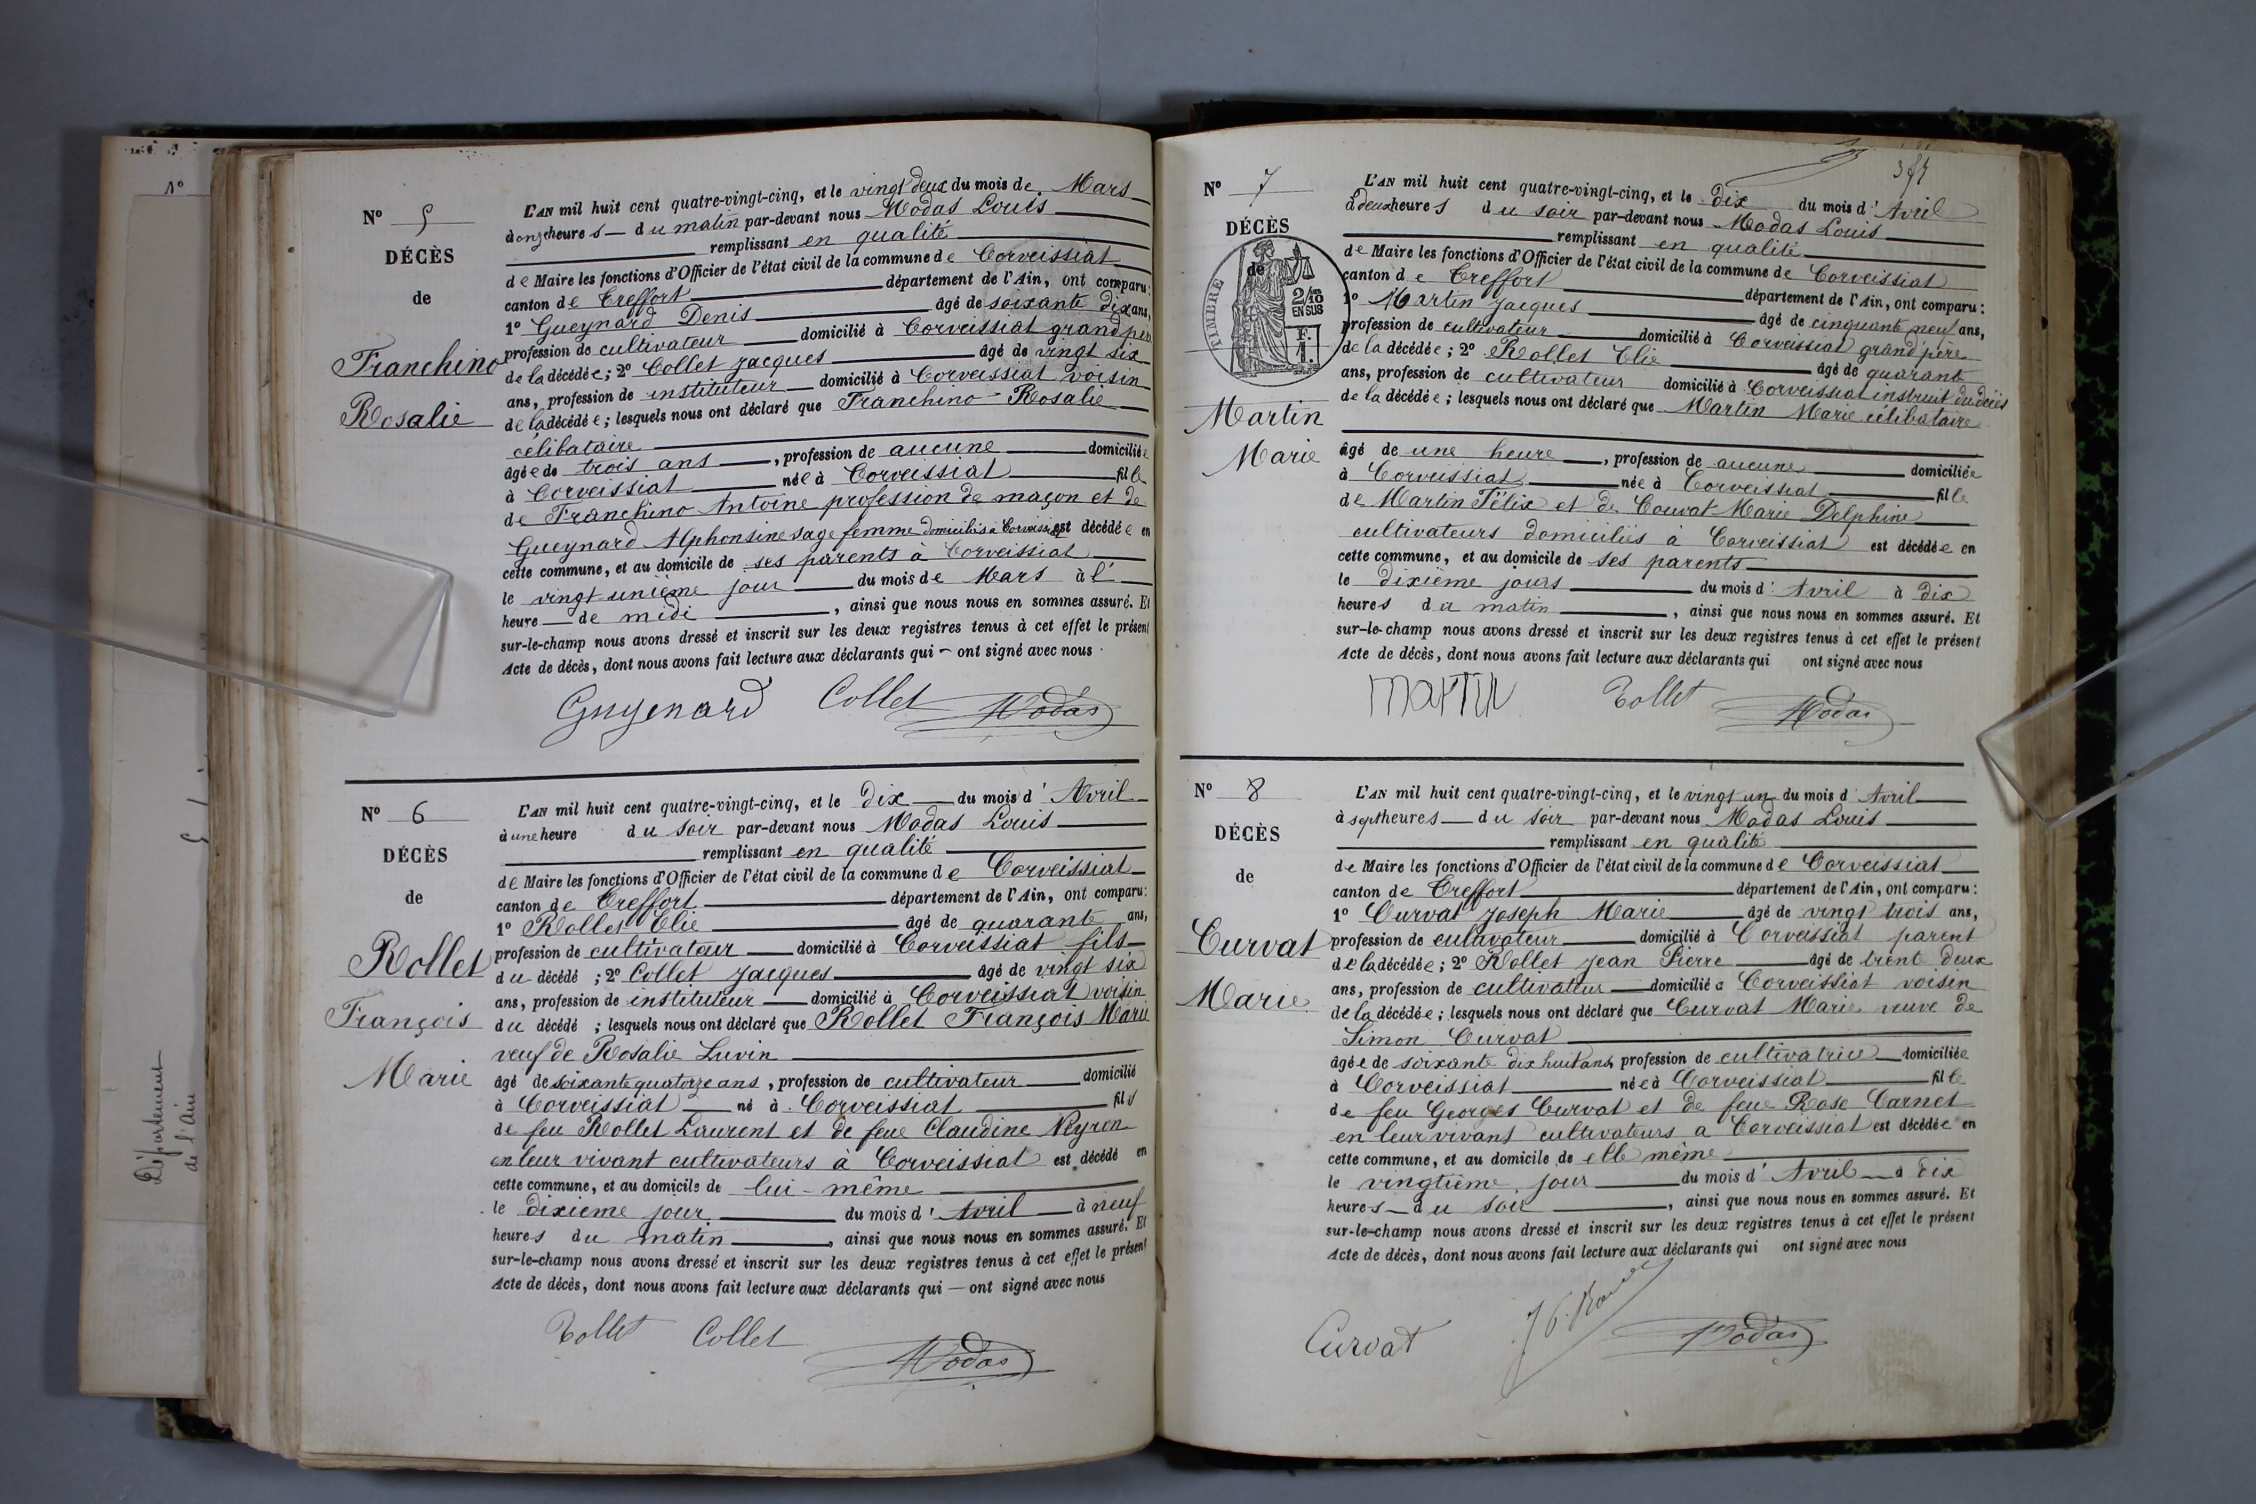 1°
Département
de l'ain
N° 5
DÉCÈS
de
Franchino
Rosalie
L'AN mil huit cent quatre-vingt-cinq, et le vingt deux du mois de Mars
à onze heures du matin par-devant nous Modas Louis
remplissant en qualité
de Maire les fonctions d'Officier de l'état civil de la commune de Corveissiat
canton de Treffort département de l'Ain, ont comparu:
1° Gueynard Denis âgé de soixante dix ans,
profession de cultivateur domicilié à Corveissiat grand père
de la décédée; 2° Collet Jacques âgé de vingt six
ans, profession de instituteur domicilié à Corveissiat voisin
de la décédée; lesquels nous ont déclaré que Franchino Rosalie
célibataire
âgée de trois ans, profession de aucune domiciliée
à Corveissiat née à Corveissiat fille
de Franchino Antoine profession de maçon et de
Gueynard Alphonsine sage femme domiciliés à Corveissiat est décédée en
cette commune, et au domicile de ses parents à Corveissiat
le vingt unième jour du mois de Mars à l'
heure de midi, ainsi que nous nous en sommes assuré. Et
sur-le-champ nous avons dressé et inscrit sur les deux registres tenus à cet effet le présent
Acte de décès, dont nous avons fait lecture aux déclarants qui ont signé avec nous
Guyenard Collet Modas
N° 6
DÉCÈS
de
Rollet
François
Marie
L'AN mil huit cent quatre-vingt-cinq, et le dix du mois d'Avril
à une heure du soir par-devant nous Modas Louis
remplissant en qualité
de Maire les fonctions d'Officier de l'état civil de la commune de Corveissiat
canton de Treffort département de l'Ain, ont comparu:
1° Rollet Elie âgé de quarante ans,
profession de cultivateur domicilié à Corveissiat fils
du décédé; 2° Collet Jacques âgé de vingt six
ans, profession de instituteur domicilié à Corveissiat voisin
du décédé; lesquels nous ont déclaré que Rollet François Marie
veuf de Rosalie Luvin
âgé de soixante quatorze ans, profession de cultivateur domicilié
à Corveissiat né à Corveissiat fils
de feu Rollet Laurent et de feue Claudine Neyron
en leur vivant cultivateurs à Corveissiat est décédé en
cette commune, et au domicile de lui-même
le dixième jour du mois d'Avril à neuf
heures du matin, ainsi que nous nous en sommes assuré. Et
sur-le-champ nous avons dressé et inscrit sur les deux registres tenus à cet effet le présent
Acte de décès, dont nous avons fait lecture aux déclarants qui — ont signé avec nous
Rollet Collet Modas
N° 7
DÉCÈS
de
TIMBRE
2/10 EN SUS
F. 1.
Martin
Marie
L'AN mil huit cent quatre-vingt-cinq, et le dix du mois d'Avril
à deux heures du soir par-devant nous Modas Louis
remplissant en qualité
de Maire les fonctions d'Officier de l'état civil de la commune de Corveissiat
canton de Treffort département de l'Ain, ont comparu:
1° Martin Jacques âgé de cinquante neuf ans,
profession de cultivateur domicilié à Corveissiat grand'père
de la décédée; 2° Rollet Elie âgé de quarante
ans, profession de cultivateur domicilié à Corveissiat instruit du décès
de la décédée; lesquels nous ont déclaré que Martin Marie célibataire
âgé de une heure, profession de aucune domiciliée
à Corveissiat née à Corveissiat fille
de Martin Félix et de Couvat Marie Delphine
cultivateurs domiciliés à Corveissiat est décédée en
cette commune, et au domicile de ses parents
le dixième jours du mois d'Avril à dix
heures du matin, ainsi que nous nous en sommes assuré. Et
sur-le-champ nous avons dressé et inscrit sur les deux registres tenus à cet effet le présent
Acte de décès, dont nous avons fait lecture aux déclarants qui ont signé avec nous
Martin Rollet Modas
N° 8
DÉCÈS
de
Curvat
Marie
L'AN mil huit cent quatre-vingt-cinq, et le vingt un du mois d'Avril
à sept heures du soir par-devant nous Modas Louis
remplissant en qualité
de Maire les fonctions d'Officier de l'état civil de la commune de Corveissiat
canton de Treffort département de l'Ain, ont comparu:
1° Curvat Joseph Marie âgé de vingt trois ans,
profession de cultivateur domicilié à Corveissiat parent
de la décédée; 2° Rollet Jean Pierre âgé de trente deux
ans, profession de cultivateur domicilié à Corveissiat voisin
de la décédée; lesquels nous ont déclaré que Curvat Marie veuve de
Simon Curvat
âgée de soixante dix huit ans, profession de cultivatrice domiciliée
à Corveissiat née à Corveissiat fille
de feu Georges Curvat et de feue Rose Carnet
en leur vivant cultivateurs a Corveissiat est décédée en
cette commune, et au domicile de elle même
le vingtième jour du mois d'Avril à dix
heures du soir, ainsi que nous nous en sommes assuré. Et
sur-le-champ nous avons dressé et inscrit sur les deux registres tenus à cet effet le présent
Acte de décès, dont nous avons fait lecture aux déclarants qui ont signé avec nous
Curvat Modas